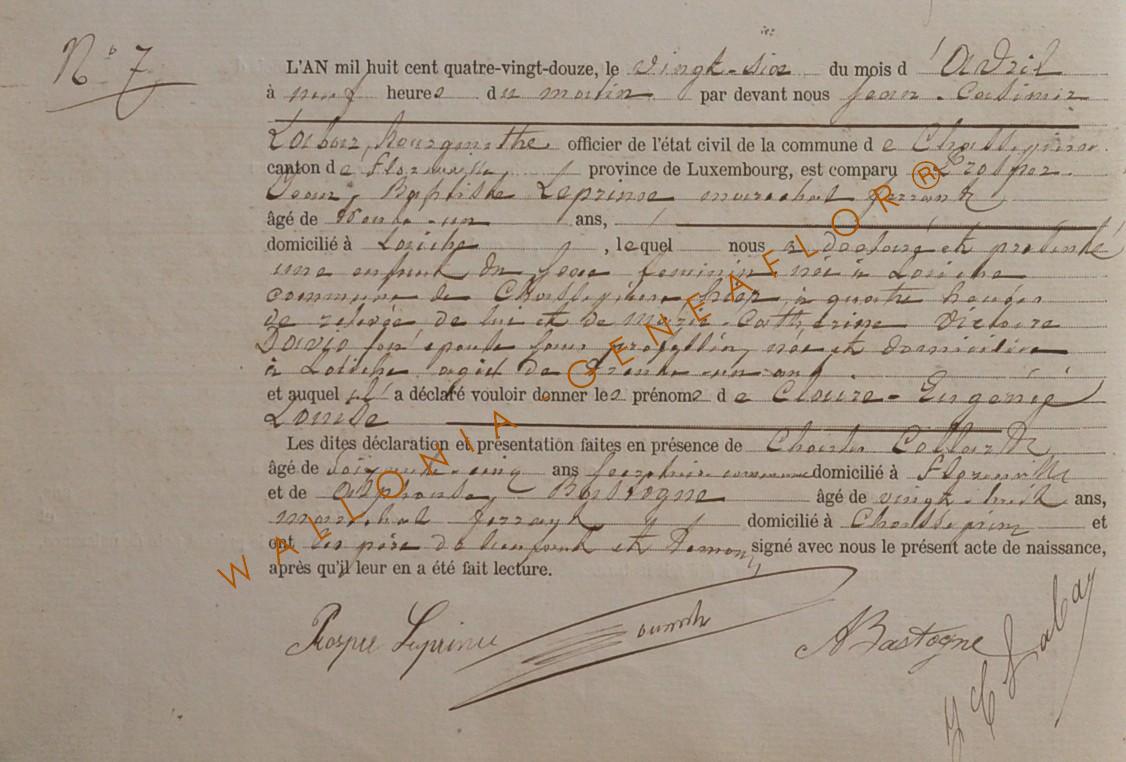 N° 7
L'AN mil huit cent quatre-vingt-douze, le vingt-six du mois d'Avril
à neuf heures du matin par devant nous Jean-Casimir
Labar, Bourgmestre officier de l'état civil de la commune de Chassepierre
canton de Florenville, province de Luxembourg, est comparu Prosper
Jean-Baptiste Leprince marechal ferrant
âgé de trente-un ans,
domicilié à Laiche, lequel nous a déclaré et présenté
une enfant du sexe feminin née à Laiche
commune de Chassepierre hier à quatre heures
de relevée de lui et de Marie-Catherine Victoire
David son épouse sans profession, née et domiciliée
à Laiche agée de trente-un ans
et auquel il a déclaré vouloir donner les prénoms de Claire-Eugénie
Louise
Les dites déclaration et présentation faites en présence de Charles
âgé de soixante-cinq ans domicilié à Florenville
et de Alphonse Bastogne âgé de vingt-huit ans,
marechal ferrant domicilié à Chassepierre et
ont les père de l'enfant et temoins signé avec nous le présent acte de naissance,
après qu'il leur en a été fait lecture.
Prosper Leprince
ABastogne
J C Labar
WALLONIA - GENEAFLOR®